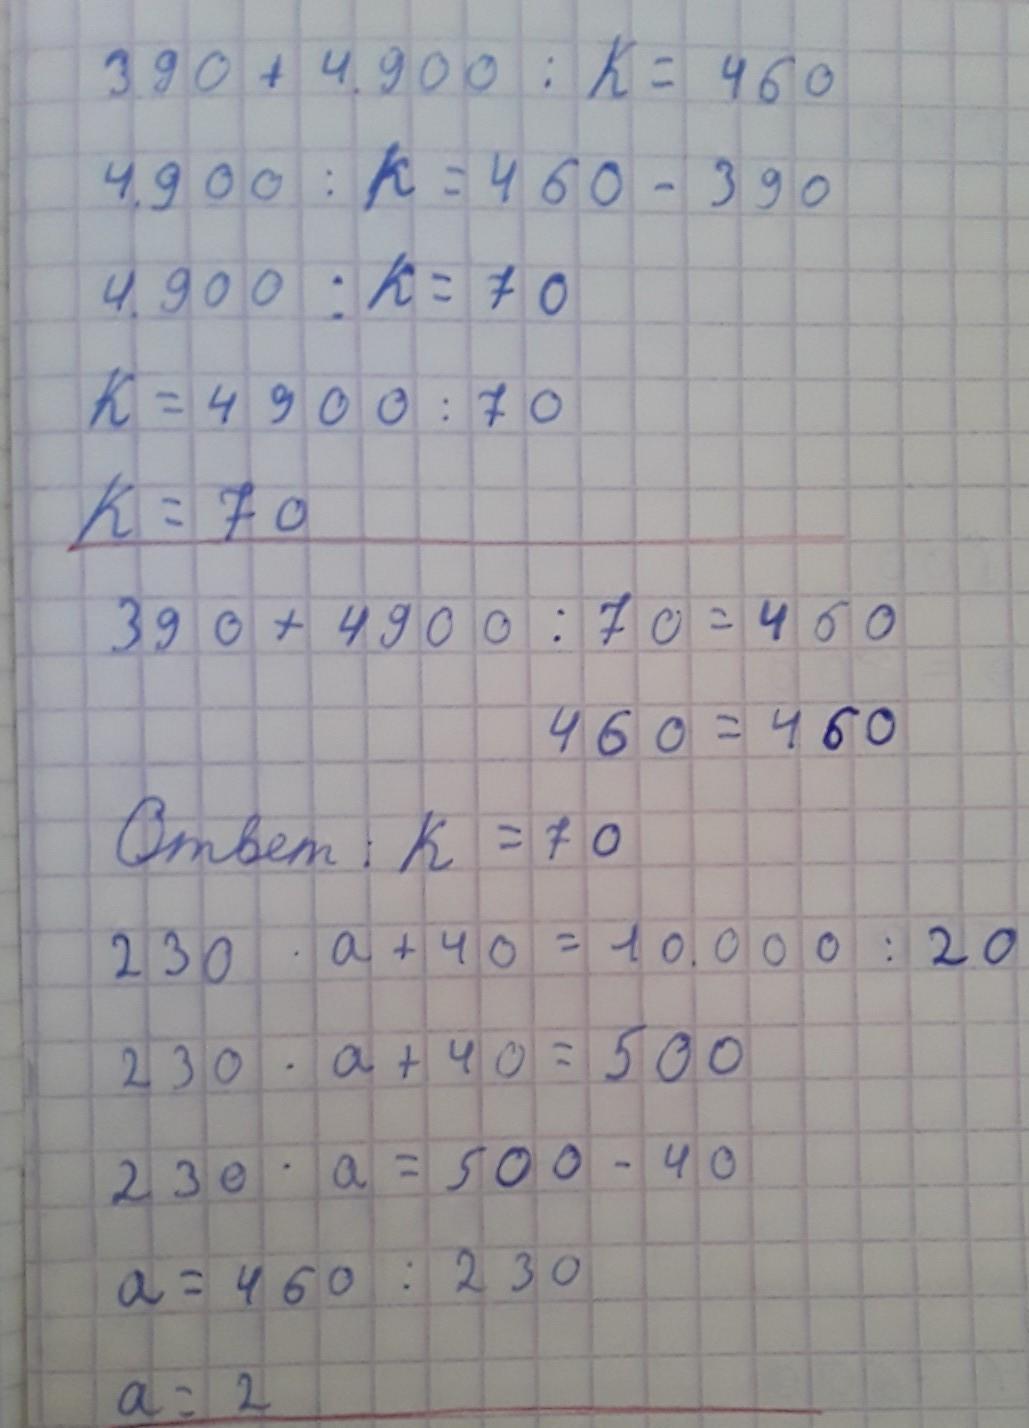 390 + 4.900 : К = 460
4.900 : К = 460 - 390
4.900 : К = 70
К = 4900 : 70
К = 70
390 + 4900 : 70 = 460
460 = 460
Ответ: К = 70
230 · а + 40 = 10.000 : 20
230 · а + 40 = 500
230 · а = 500 - 40
а = 460 : 230
а = 2